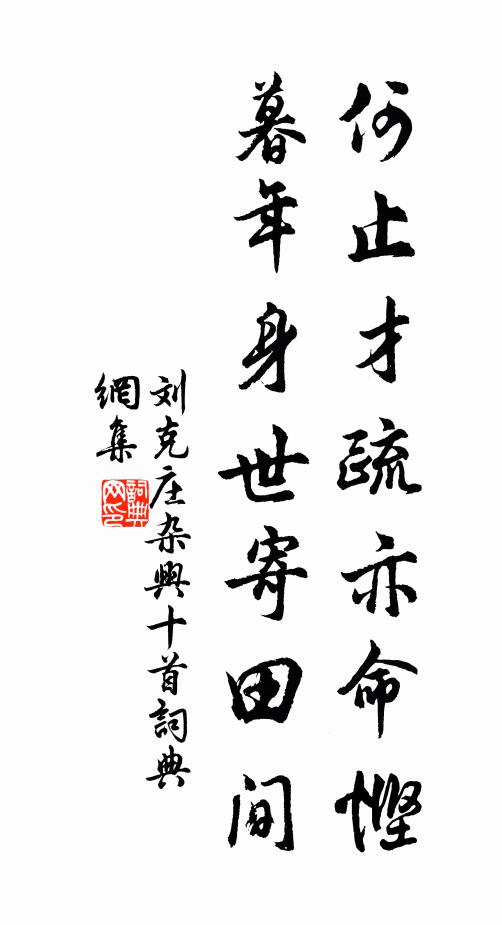 何止才疏亦命慳
暮年身世寄田间
刘克庄杂興十首詞典
網集
詞典網印